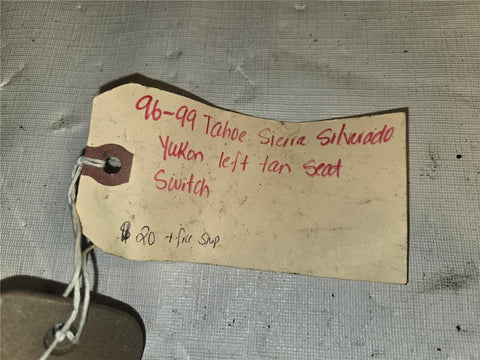 96-99 Tahoe Sierra Silverado
Yukon left tan seat
Switch
$ 20 + free Ship.